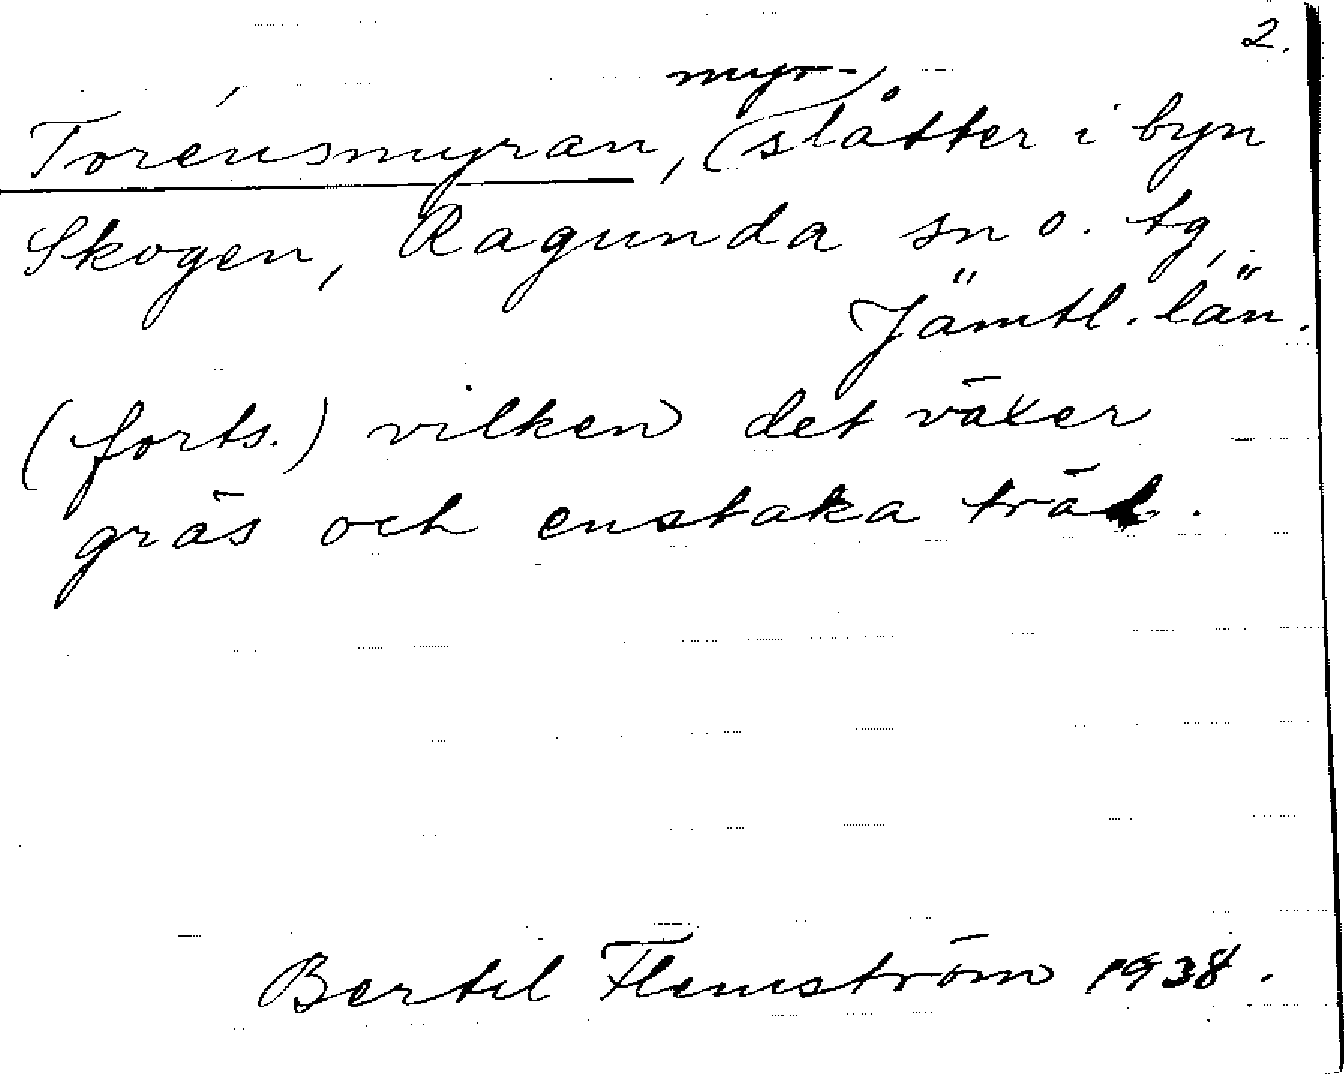 2.
myr-
Torénsmyran, slåtter i byn
Skogen, Ragunda sn o. tg,
Jämtl. län.
(forts.) vilken det växer
gräs och enstaka träd.
Bertil Flemström 1938.